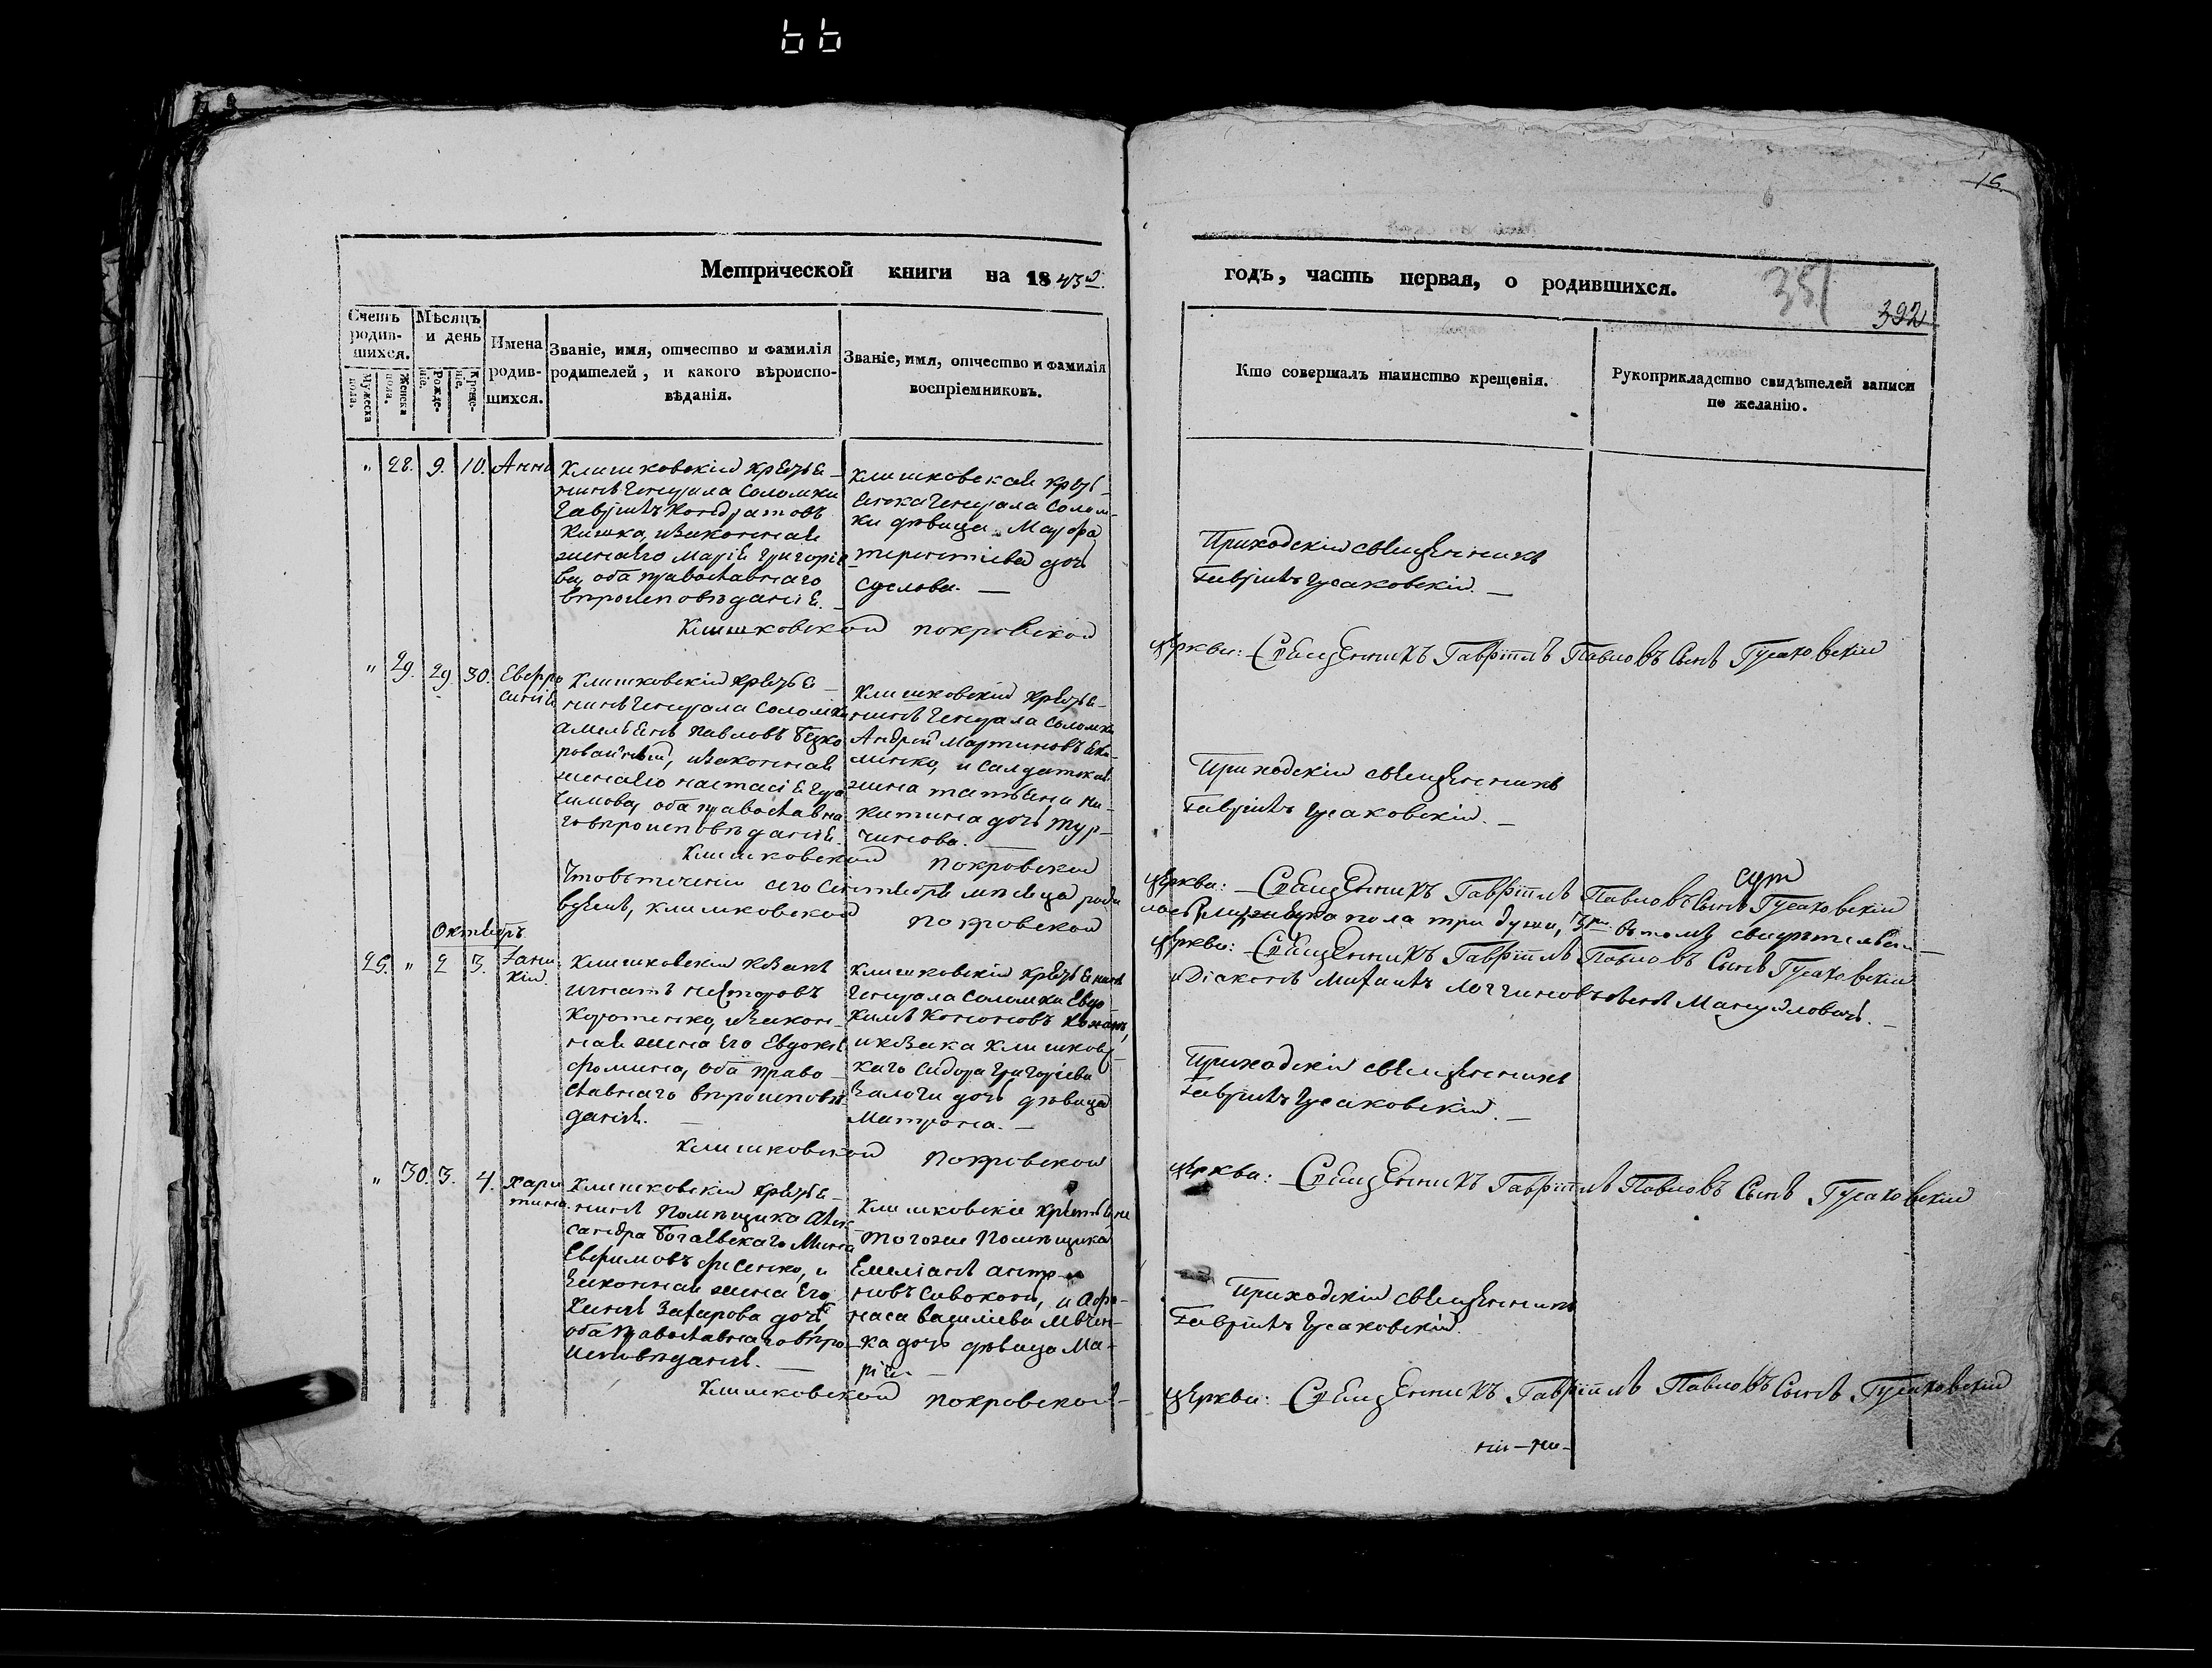 66
15.
Метрической книги на 1843 г.
годъ, часть первая, о родившихся.
351
392
Счетъ родившихся.
Мужеска пола.
Женска пола.
Мѣсяцъ и день
Рожденіе.
Крещеніе.
Имена родившихся.
Званіе, имя, отчество и фамилія
родителей, и какого вѣроиспо-
вѣданія.
Званіе, имя, отчество и фамилія
воспріемниковъ.
Кто совершалъ таинство крещенія.
Рукоприкладство свидѣтелей записи
по желанію.
" 28. 9. 10. Анна
Клишковскій крестья-
нинъ Генерала Соломки
Гавріилъ Кондратовъ
Кишка, и законная
жена его Марія Григоріе
ва, оба православнаго
вѣроисповѣданія. —
Клишковская кресть-
янка Генерала Солом-
ки дѣвица Марфа
терентіева дочь
—
Приходскій священникъ
Гавріилъ Гусаковскій. —
Клишковской покровской
церкви: Священникъ Гавріилъ Павловъ Сынъ Гусаковскій
" 29. 29. 30. Евфро
синія
Клишковскій крестья-
нинъ Генерала Соломки
Амельянъ Павловъ Безко
ровайный, и законная
жена его настасія
оба православна
го вѣроисповѣданія.
Клишковскій крестья-
нинъ Генерала Соломки
Андрей Мартиновъ
и Салдатская
жена татьяна ни-
китина дочь Тур-
чинова. —
Приходскій священникъ
Гавріилъ Гусаковскій. —
Клишковской Покровской
церкви: Священникъ Гавріилъ Павловъ Сынъ Гусаковскій
Что въ теченіи сего Сентября мѣсяца роди
лось пола три души, въ томъ свидѣтельствуемъ
Клишковской Покровской
церкви: Священникъ Гавріилъ Павловъ Сынъ Гусаковскій
и Діаконъ Михаилъ Логгиновъ Сынъ Мануйловичъ. —
Октябрь
25. " 2 3. Дани
кій.
Клишковскій козакъ
Игнатъ Несторовъ
Коротенко, и закон-
ная жена его Евдокія
фомина, оба право-
славнаго вѣроисповѣ-
данія. —
Клишковскій крестьянинъ
Генерала Соломки Евдо
кимъ Кононовъ
и козака Клишковс-
каго Сидора Григоріева
Залоги дочь дѣвица
Матрона. —
Приходскій священникъ
Гавріилъ Гусаковскій. —
Клишковской Покровской
церкви: Священникъ Гавріилъ Павловъ Сынъ Гусаковскій
" 30. 3. 4. Хари
тина.
Клишковскій крестья-
нинъ Помѣщика Алек
сандра Богаевскаго Мина
Ефимовъ и
законная жена его
Захарова дочь
оба православнаго вѣро
исповѣданія. —
Клишковскіе крестьяне
тогоже Помѣщика
Емеліанъ
новъ Сивоконь, и Афа-
наса Василіева
ка дочь дѣвица Ма-
рія. —
Приходскій священникъ
Гавріилъ Гусаковскій.
Клишковской покровской
церкви: Священникъ Гавріилъ Павловъ Сынъ Гусаковскій